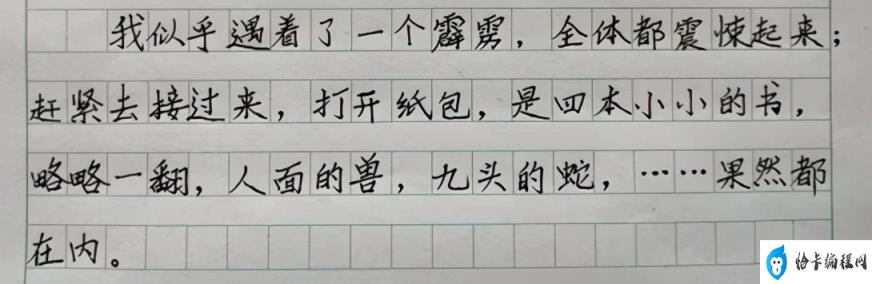 我似乎遇着了一个霹雳，全体都震悚起来；
赶紧去接过来，打开纸包，是四本小小的书，
略略一翻，人面的兽，九头的蛇，……果然都
在内。
恰卡编程网